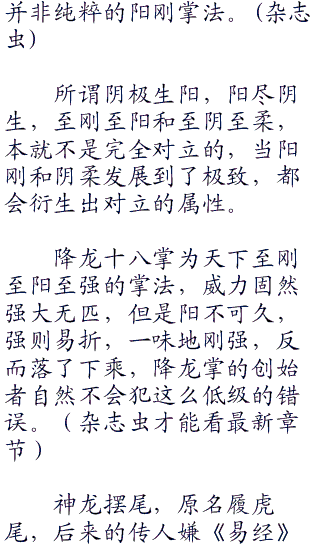 并非纯粹的阳刚掌法。(杂志
虫)
所谓阴极生阳，阳尽阴
生，至刚至阳和至阴至柔，
本就不是完全对立的，当阳
刚和阴柔发展到了极致，都
会衍生出对立的属性。
降龙十八掌为天下至刚
至阳至强的掌法，威力固然
强大无匹，但是阳不可久，
强则易折，一味地刚强，反
而落了下乘，降龙掌的创始
者自然不会犯这么低级的错
误。（杂志虫才能看最新章
节）
神龙摆尾，原名履虎
尾，后来的传人嫌《易经》